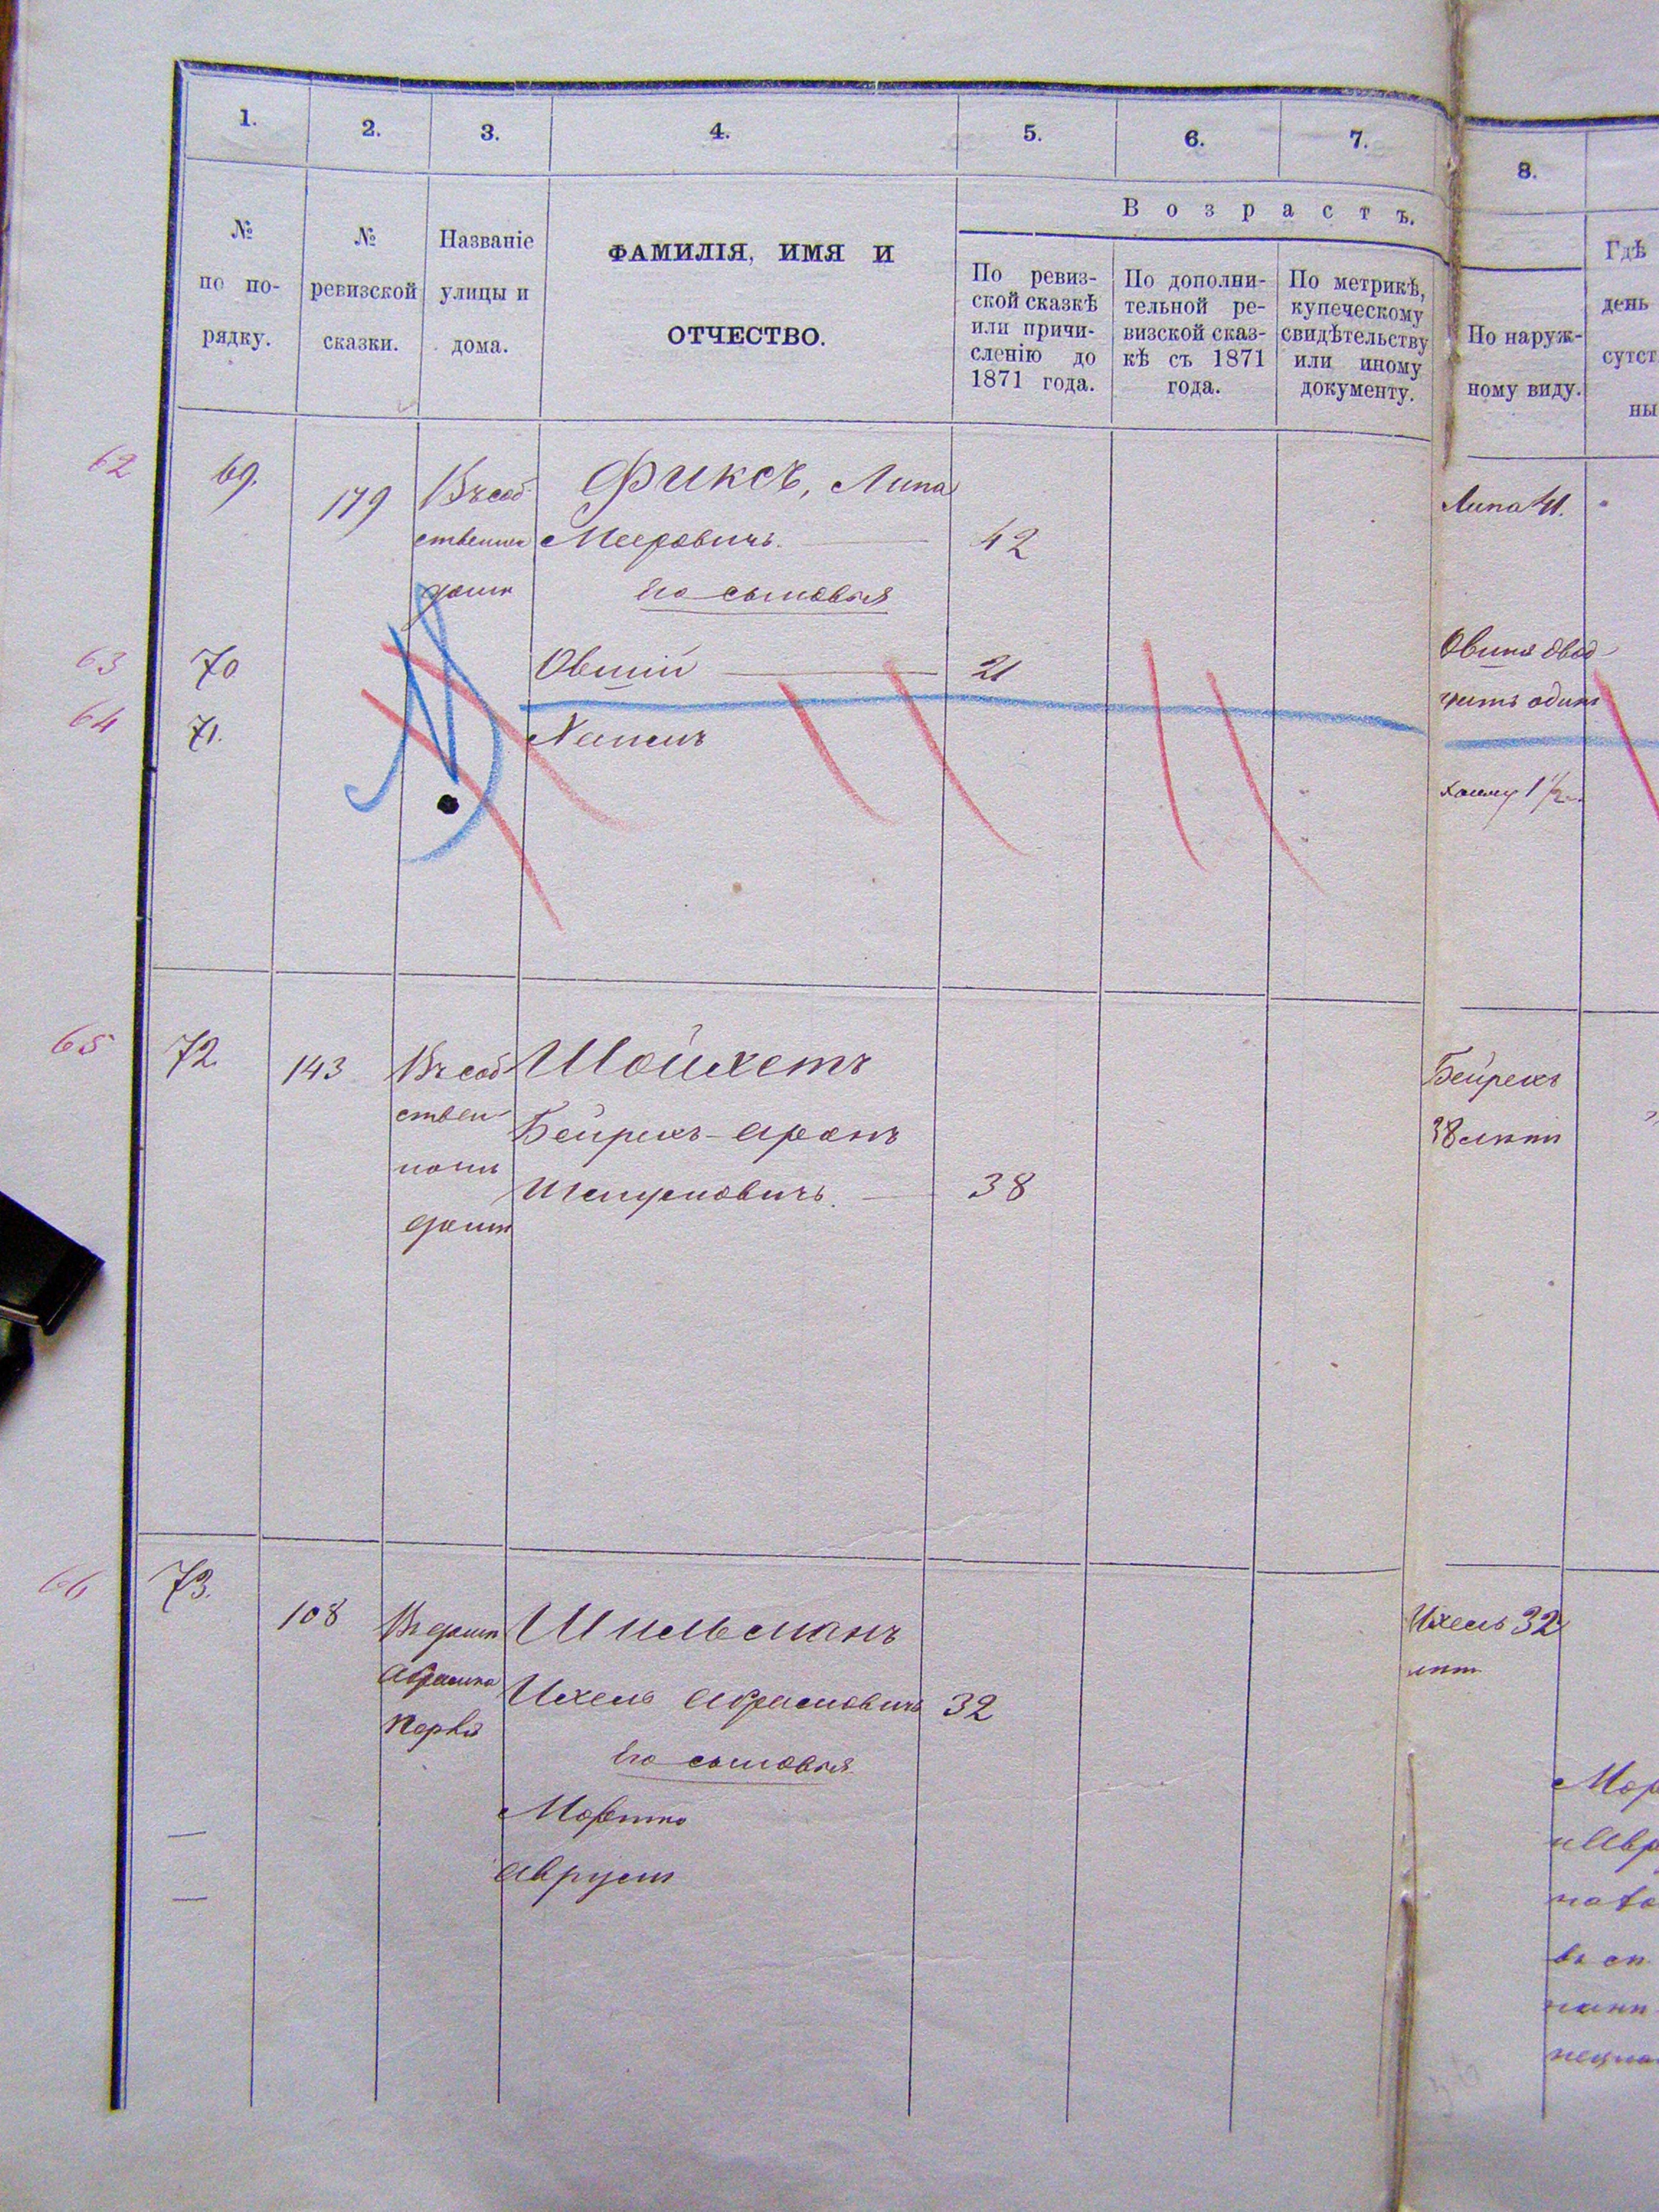 1. 2. 3. 4. 5. 6. 7. 8.
В о з р а с т ъ.
№ по по-рядку.
№ ревизской сказки.
Названіе улицы и дома.
ФАМИЛІЯ, ИМЯ И
ОТЧЕСТВО.
По ревиз-
ской сказкѣ
или причи-
сленію до
1871 года.
По дополни-
тельной ре-
визской сказ-
кѣ съ 1871
года.
По метрикѣ,
купеческому
свидѣтельству
или иному
документу.
По наруж-
ному виду.
Гдѣ
день
сутст
ны
62 69. 179 Въ соб
ственном
домѣ
Фиксъ, Липа
Мееровичъ. 42
Его сыновья
Липа 41.
63 70 Овшій 21
Овшія двад-
цать одинъ
64 71. Хаимъ
Хаиму 1 1/2
65 72 143 Въ соб
ствен
номъ
домѣ
Шойхетъ
Бейрехъ-Аронъ
Шмулиовичъ. 38
Бейрехъ
38 лѣтъ
66 73. 108 Въ домѣ
Абрамка
Шильманъ
Ихель Абрамовичъ 32
Его сыновья
Мортко
Аврумъ
Ихель 32
лѣт
Мор
и Авр